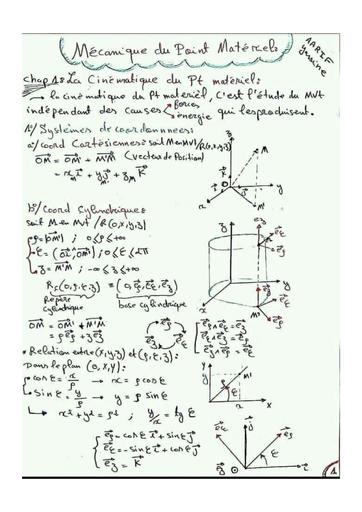 Mécanique du Point Matériel:
ARRIF
Yassine
Chap 1: La Cinématique du Pt matériel:
→ la cinématique du Pt matériel, c'est l'étude du MVT
indépendant des causes forces
énergie qui les produisent.
1°/ Systèmes de coordonnées:
a°/ coord Cartésiennes: soit M en MVT / R(o,x,y,z)
OM = OM' + M'M (vecteur de Position)
= x_m i + y_m j + z_m K
b°/ Coord Cylindriques:
soit M en MVT / R(o,x,y,z)
ρ = |OM'| ; 0 ≤ ρ ≤ +∞
ε = (Oi, OM') ; 0 ≤ ε ≤ 2π
z = M'M ; -∞ ≤ z ≤ +∞
R(0,ρ,ε,z) = (0,eρ,eε,ez)
Repère cylindrique
base cylindrique
OM = OM' + M'M
= ρeρ + zez
eρ∧eε = ez
eε∧ez = eρ
ez∧eρ = eε
* Relation entre (x,y,z) et (ρ,ε,z):
Dans le plan (O,X,Y):
cos ε = x/ρ → x = ρ cos ε
sin ε = y/ρ → y = ρ sin ε
↳ x² + y² = ρ² ; y/x = tg ε
eρ = cos ε i + sin ε j
eε = -sin ε i + cos ε j
ez = K
1